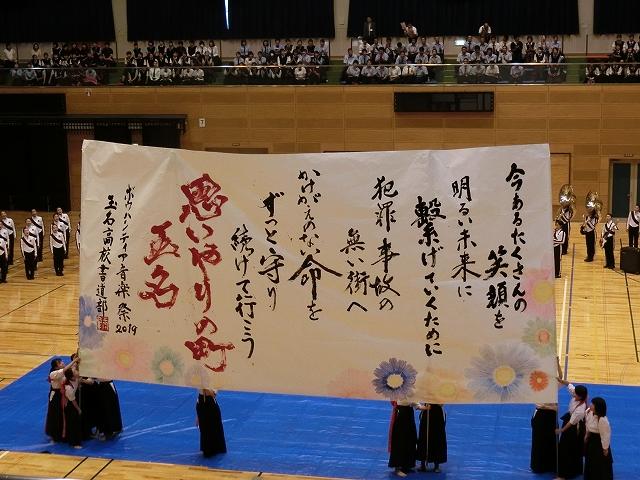 今あるたくさんの
笑顔を
明るい未来に
繋げていくために
犯罪事故の
無い街へ
かけがえのない命を
ずっと守り
続けて行こう
思いやりの町
玉名
ボランティア音楽祭2019
玉名高校書道部